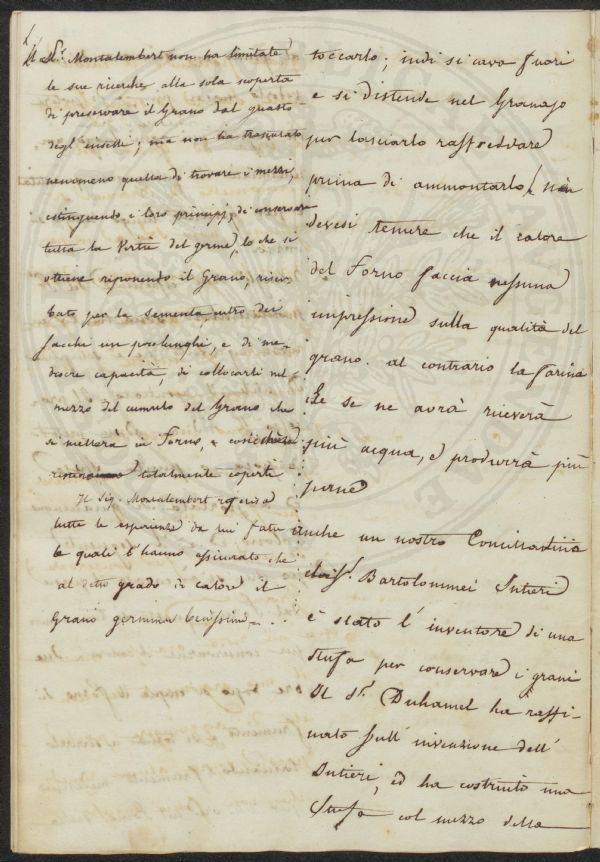 Il Sr. Montalembert non ha limitate
le sue ricerche alla sola scoperta
di preservare il Grano dal guasto
degl' insetti; ma non ha trascurato
nemmeno quella di trovare i mezzi,
estinguendo i loro principj, di conservare
tutta la Virtù del germe, lo che si
ottiene riponendo il Grano, riser-
bato per la sementa, entro dei
sacchi un po' lunghi, e di me-
diocre capacità, di collocarli nel
mezzo del cumulo del Grano che
si metterà in Forno, e così
totalmente coperti
Il Sig. Montalembert
tutte le esperienze da lui fatte
le quali l' hanno assicurato che
al detto grado di calore il
Grano germina benissimo.
toccarlo; indi si cava fuori
e si distende nel Granajo
per lasciarlo raffreddare
prima di ammontarlo. Non
devesi temere che il calore
del Forno faccia nessuna
impressione sulla qualità del
grano. al contrario la farina
che se ne avrà riceverà
più acqua, e produrrà più
pane
Anche un nostro Concittadino
Bartolommei Intieri
è stato l' inventore di una
stufa per conservare i grani
Il Sr. Duhamel ha raffi-
nato sull' invenzione dell'
Intieri, ed ha costruito una
Stufa col mezzo della